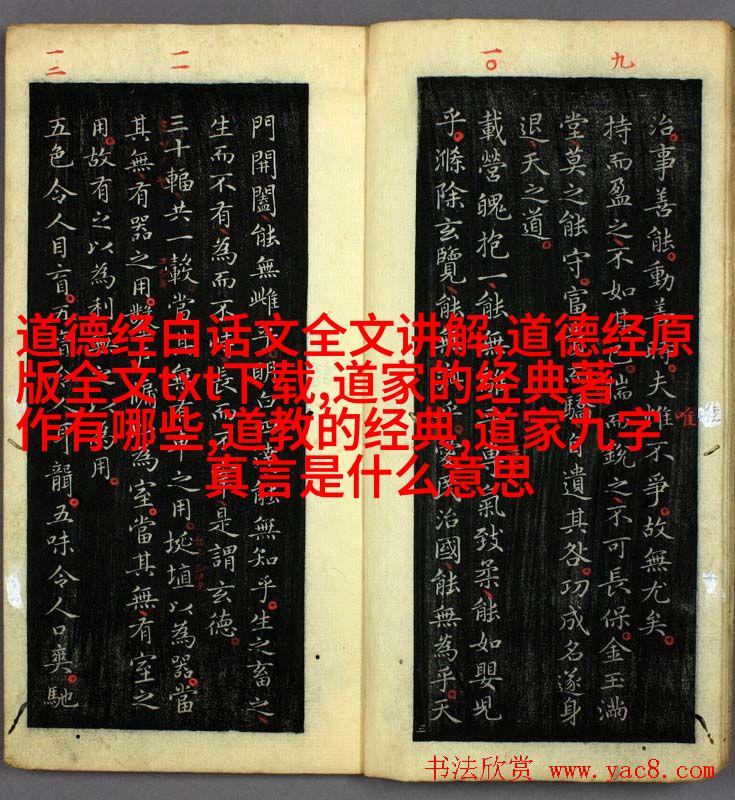 九
一〇
一一
一二
治。事善能。動善時。夫唯不爭。故無尤矣。
唯
持而盈之。不如其已。揣而銳之。不可長保。金玉滿
堂。莫之能守。富驕。自遺其咎。功成名遂身
退。天之道。
載營魄抱一。能無氣致柔。能如嬰兒
乎。滌除玄覽。能無乎。民治國。能無為乎。天
門開闔。能無雌乎。明能無知乎。生之畜之。
生而不有。為而不恃。長而不是謂玄德。
三十輻。共一轂。當其無。有車之用。埏埴以為器。當
其無。有器之用。鑿戶牖為室。當其無。有室之
用。故有之以為利。無之以為用。
五色令人目盲。五音令人耳聾。五味令人口爽。馳
道德经白话文全文讲解,道德经原
版全文txt下载,道家的经典著
作有哪些,道教的经典,道家九字
真言是什么意思
书法欣赏 www.yac8.com